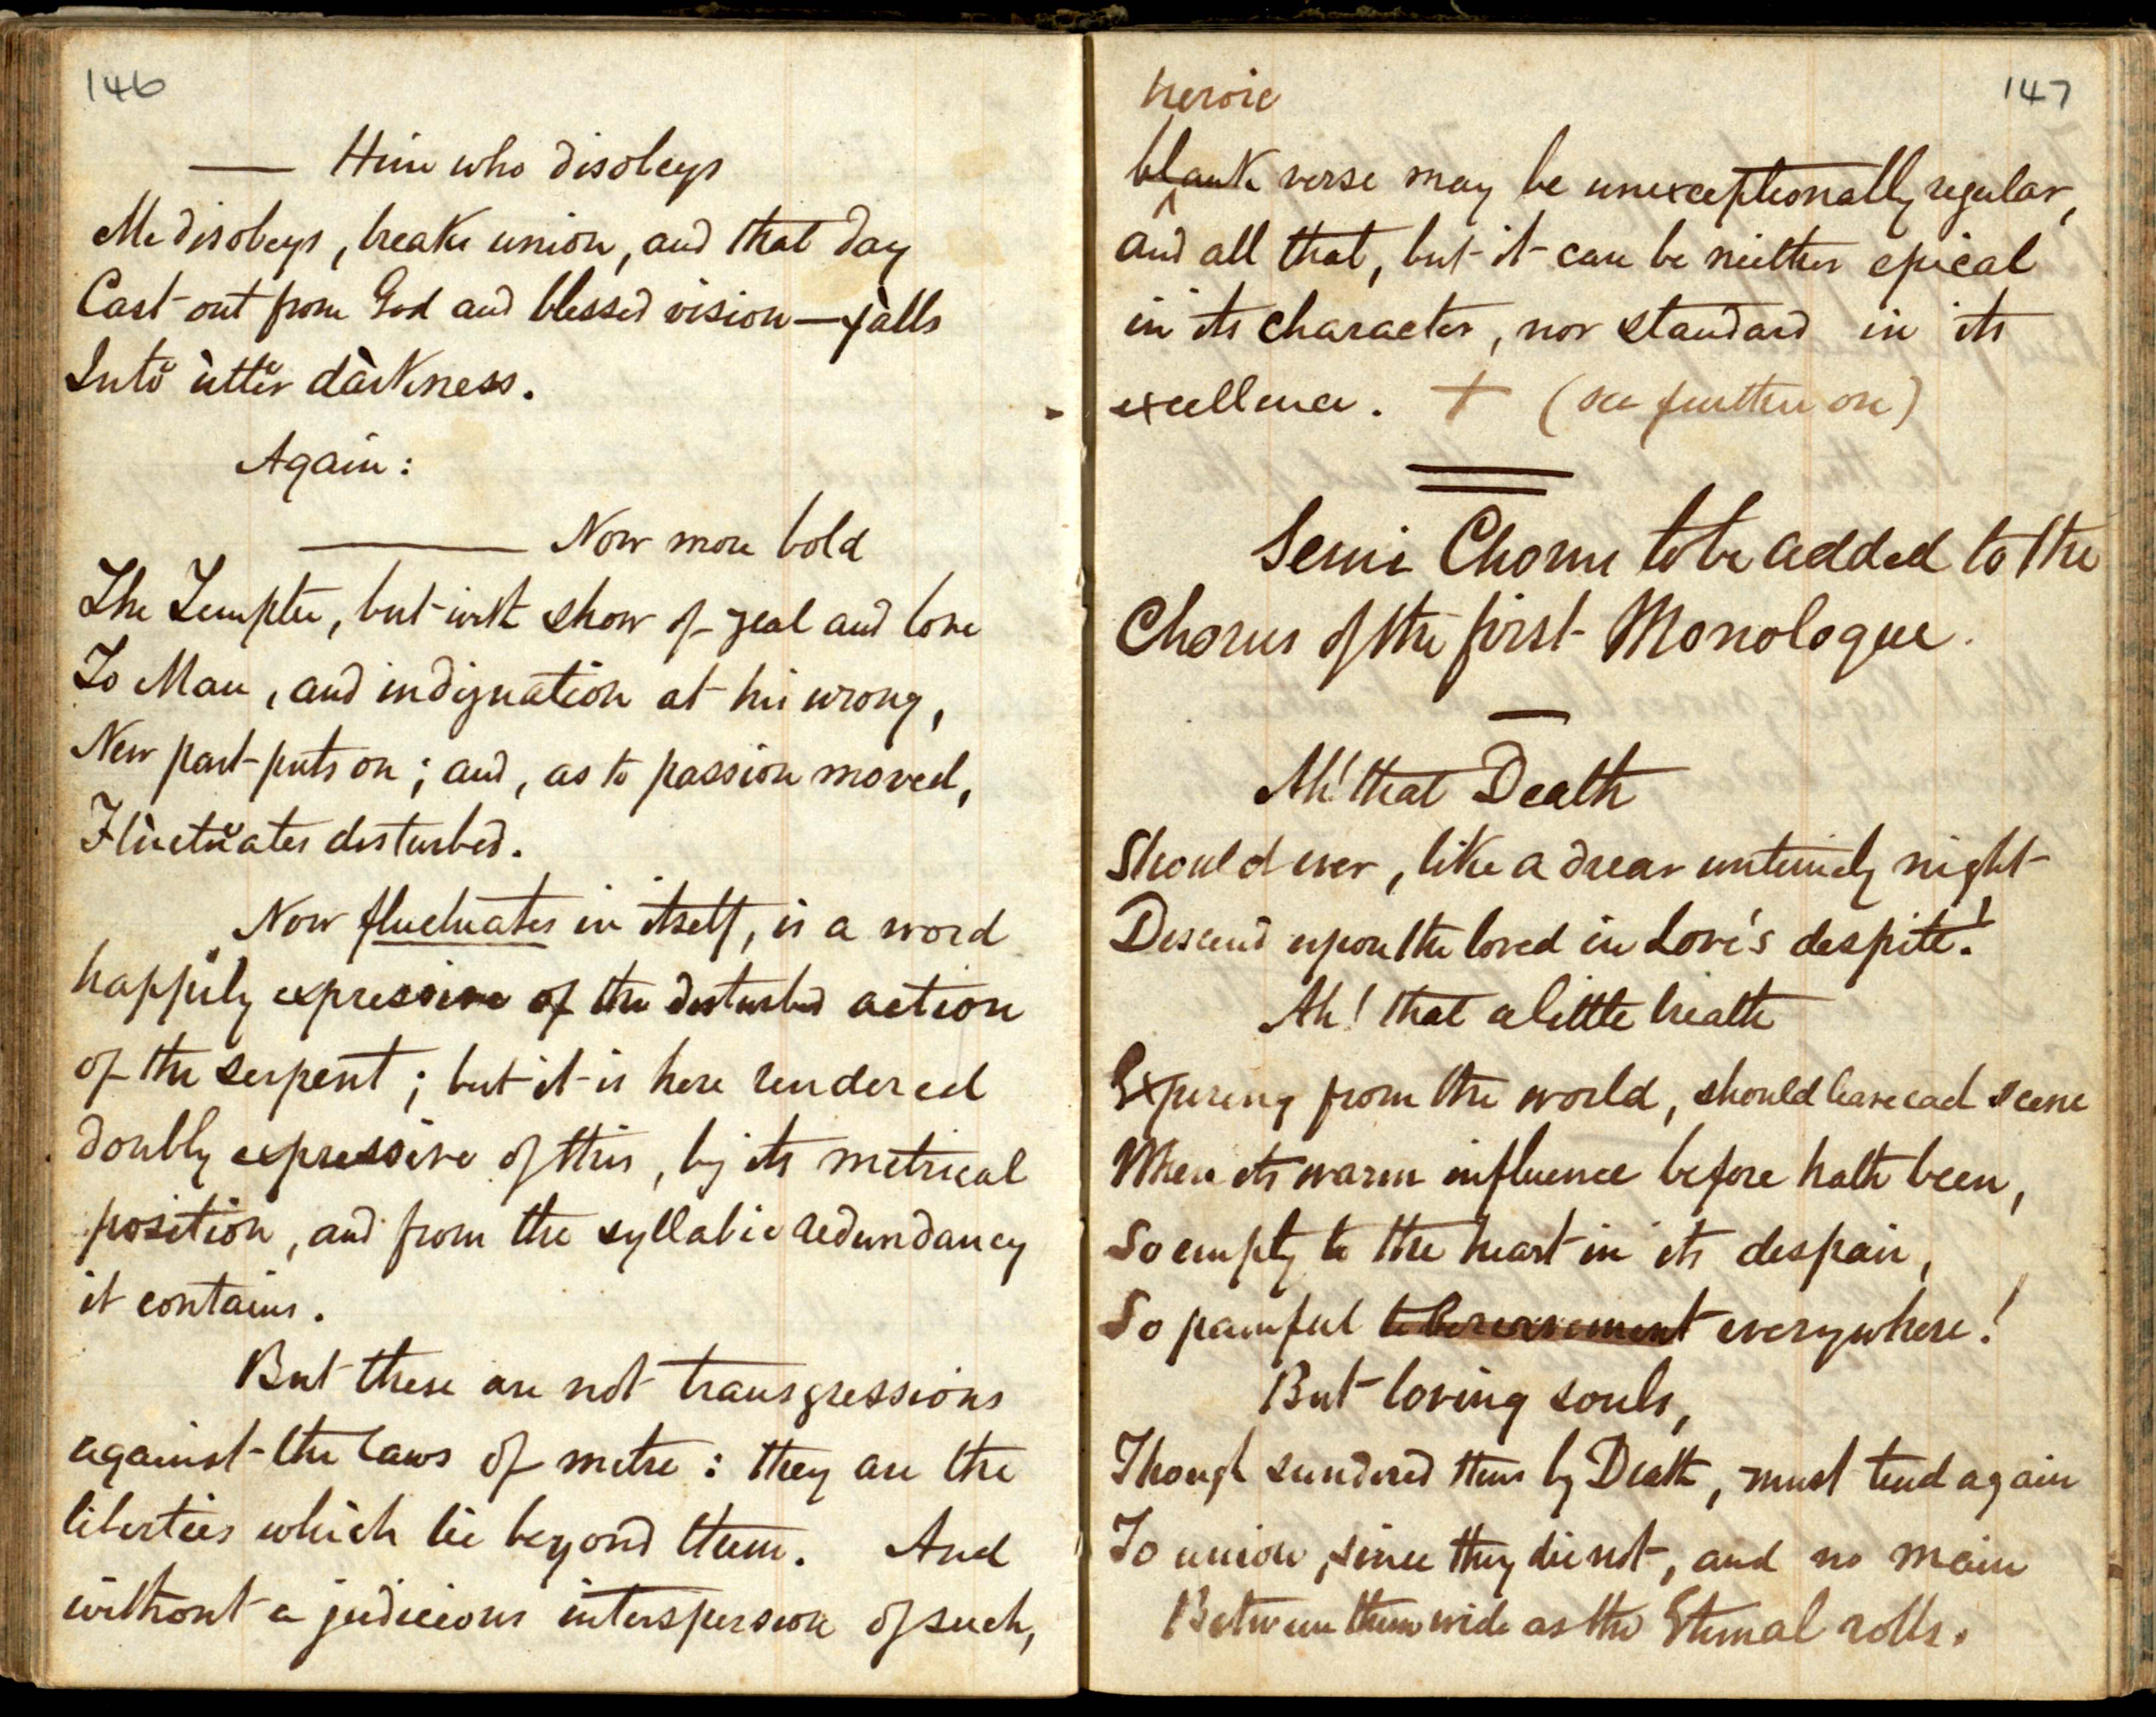 146
—— Him who disobeys
Me disobeys, breaks union, and that day
Cast out from God and blessed vision — fàlls
Intŏ ùttĕr dàrkness.
Again:
——— Now more bold
The Tempter, but with show of zeal and love
To Man, and indignation at his wrong,
New part puts on; and, as to passion moved,
Flùctŭates disturbed.
Now fluctuates in itself, is a word
happily expressive of the disturbed action
of the serpent; but it is here rendered
doubly expressive of this, by its metrical
position, and from the syllabic redundancy
it contains.
But these are not transgressions
against the laws of metre: they are the
liberties which lie beyond them. And
without a judicious interspersion of such,
147
heroic
blank verse may be unexceptionally regular,
and all that, but it can be neither epical
in its character, nor standard in its
excellence. + (see further on)
Semi Chorus to be added to the
Chorus of the first Monologue.
Ah! that Death
Should ever, like a drear untimely night
Descend upon the loved in Love's despite!
Ah! that a little breath
Expiring from the world, should leave each scene
Where its warm influence before hath been,
So empty to the heart in its despair,
So painful to bereavement everywhere!
But loving souls,
Though sundered thus by Death, must tend again
To union, since they die not, and no main
Between them wide as the Eternal rolls.